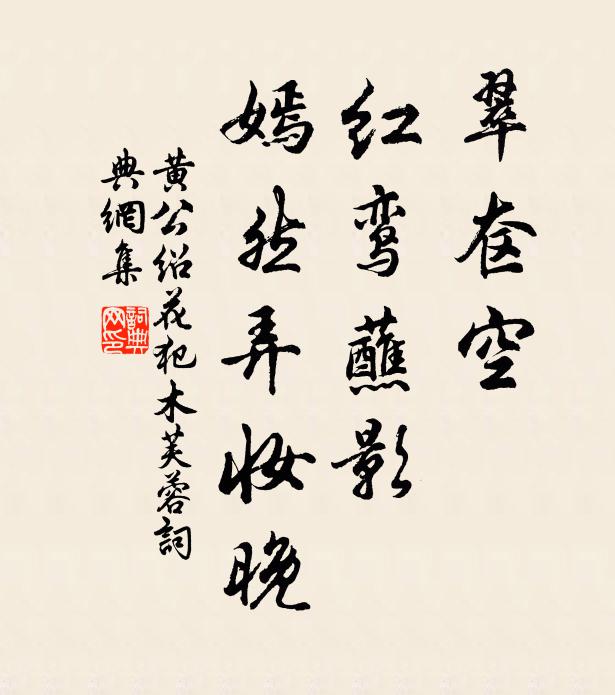 翠奁空
红鸾蘸影
嫣然弄妆晚
黄公绍花犯木芙蓉詞
典網集
詞典
网印